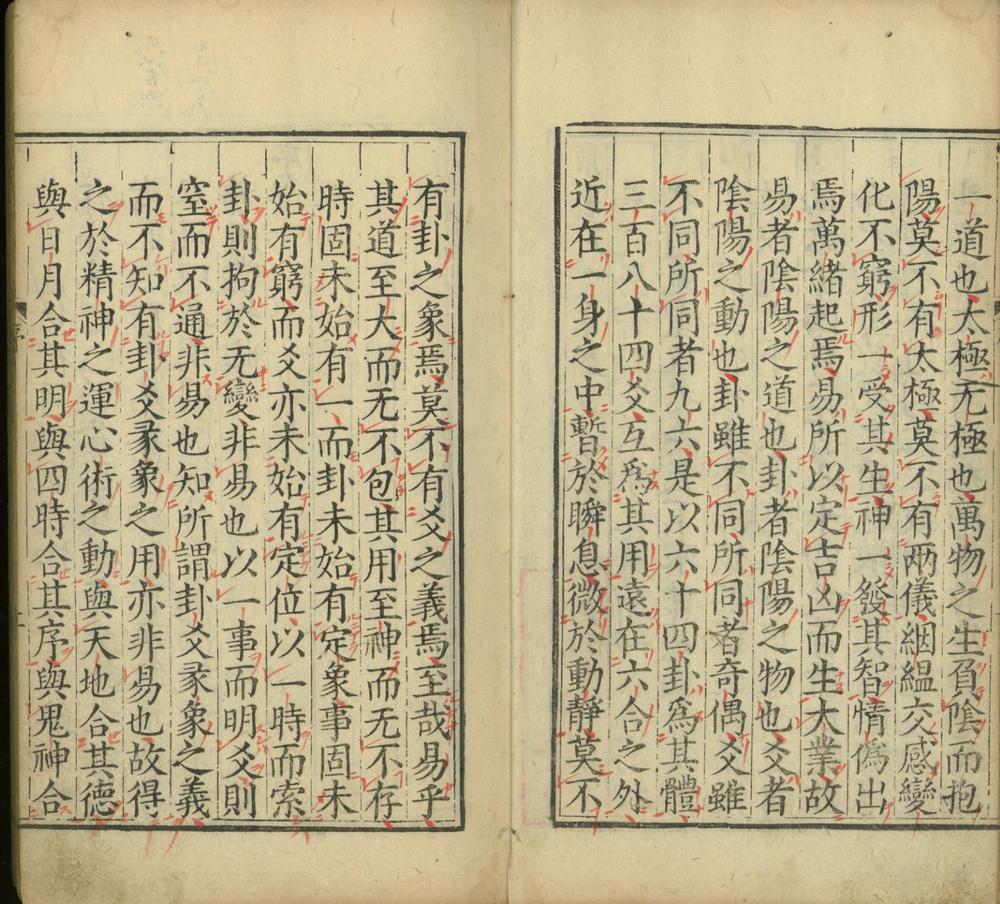 一道也太極无極也萬物之生負陰而抱
陽莫不有太極莫不有兩儀絪縕交感變
化不窮形一受其生神一發其智情偽出
焉萬緒起焉易所以定吉凶而生大業故
易者陰陽之道也卦者陰陽之物也爻者
陰陽之動也卦雖不同所同者奇偶爻雖
不同所同者九六是以六十四卦爲其體
三百八十四爻互爲其用遠在六合之外
近在一身之中暫於瞬息微於動靜莫不
有卦之象焉莫不有爻之義焉至哉易乎
其道至大而无不包其用至神而无不存
時固未始有一而卦未始有定象事固未
始有窮而爻亦未始有定位以一時而索
卦則拘於无變非易也以一事而明爻則
窒而不通非易也知所謂卦爻彖象之義
而不知有卦爻彖象之用亦非易也故得
之於精神之運心術之動與天地合其德
與日月合其明與四時合其序與鬼神合
序